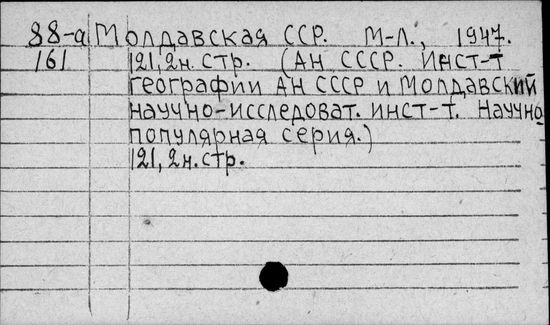 88-а Молдавская ССР. М-Л., 1947.
161 121, 2н. стр. (АН СССР. Инст-т
географии АН СССР и Молдавский
научно-исследоват. инст-т. Научно
популярная серия.)
121, 2н. стр.